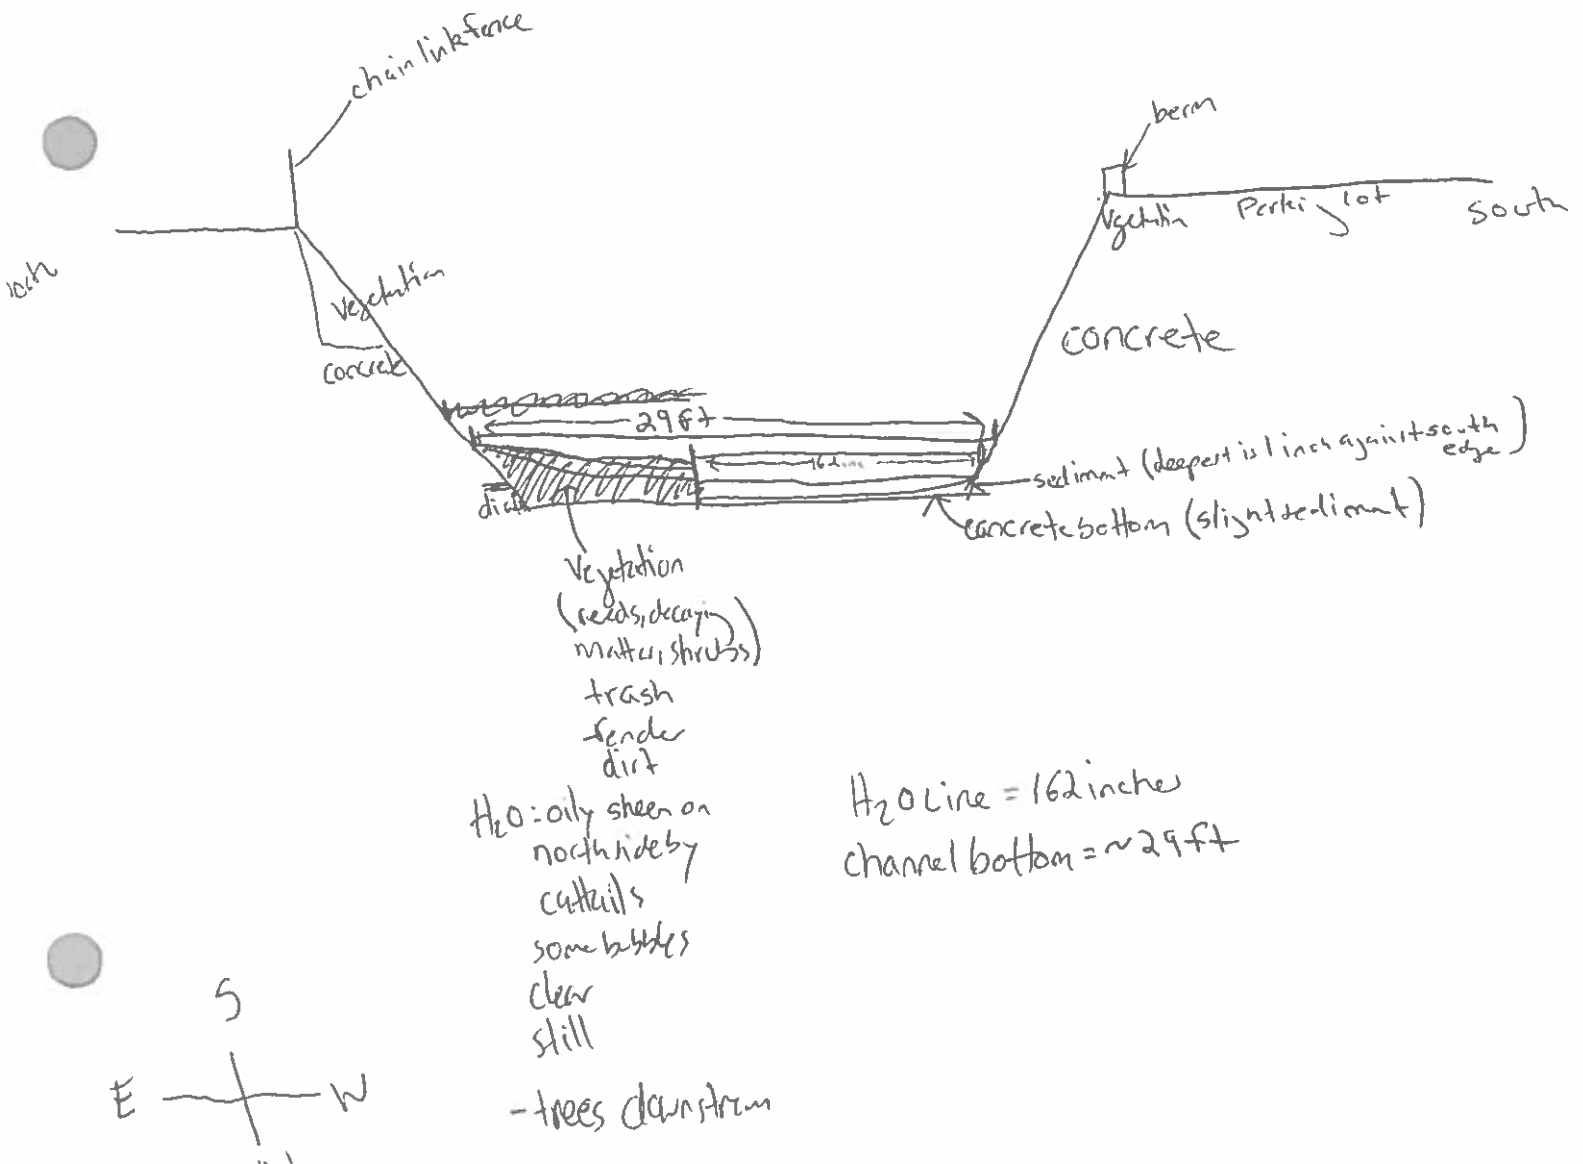 chain link fence
berm
Vegetation
Parking lot
South
north
Vegetation
concrete
concrete
29 ft
162 in
sediment (deepest is 1 inch against south
edge)
dirt
concrete bottom (slight sediment)
Vegetation
(reeds, decaying
matter, shrubs)
trash
fender
dirt
H2O: oily sheen on
north side by
cattails
some bubbles
clear
still
- trees downstream
H2O Line = 162 inches
channel bottom = ~29 ft
S
E
W
N